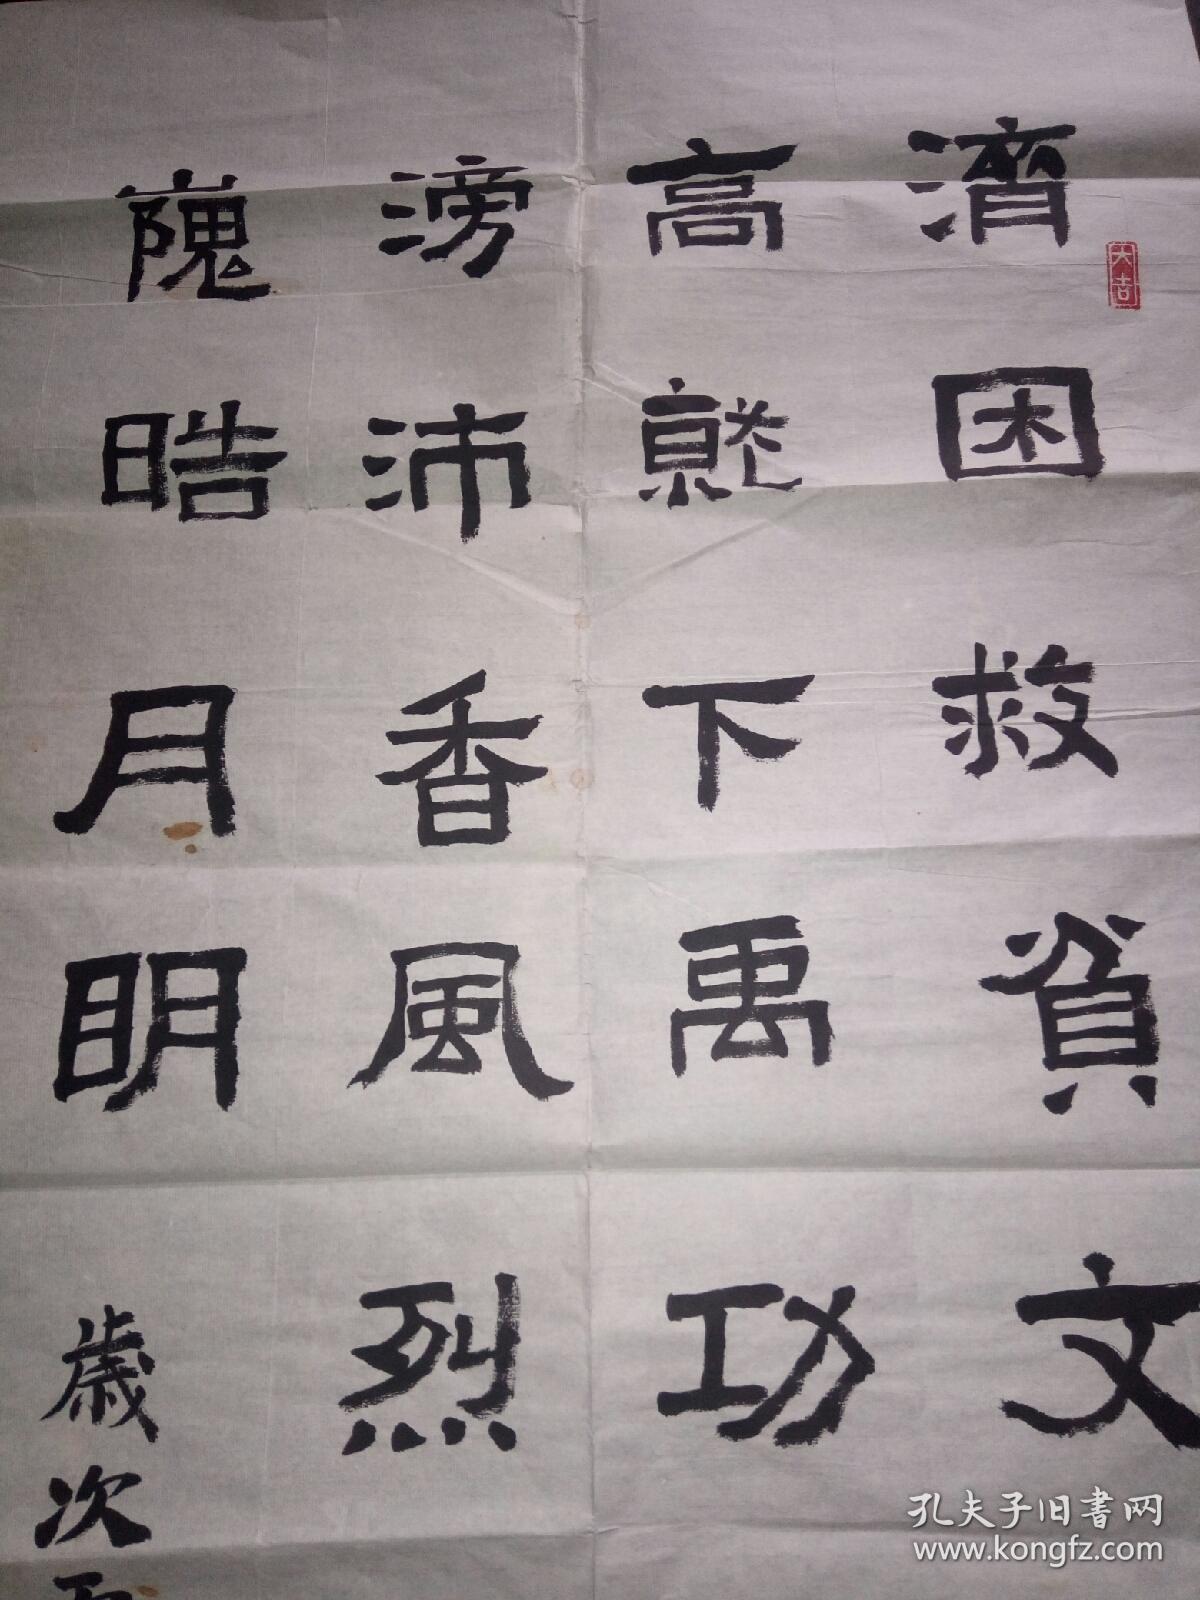 濟困救貧文
大吉
高就下禹功
滂沛香風烈
巍皓月明
歲次
孔夫子旧书网
www.kongfz.com